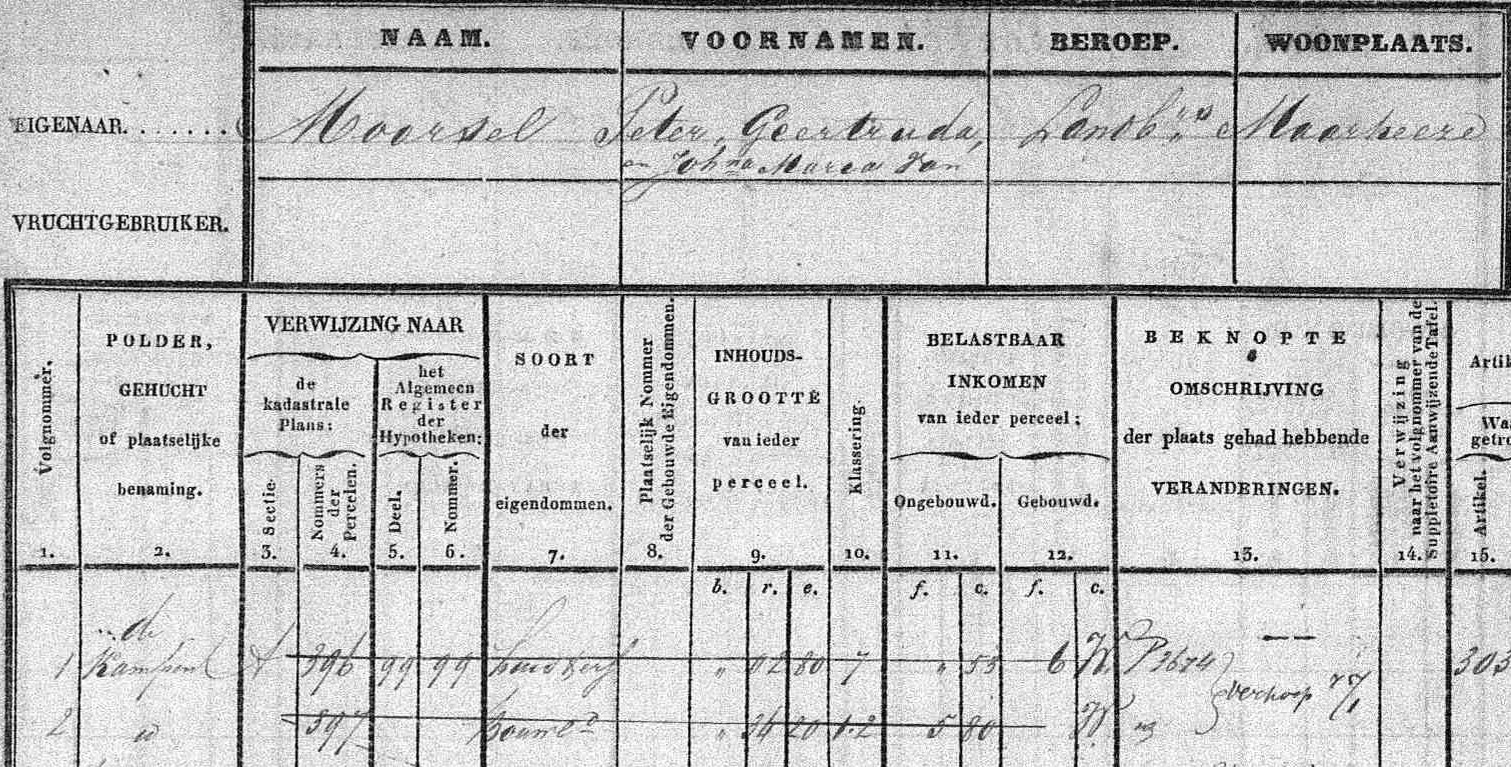 NAAM. VOORNAMEN. BEROEP. WOONPLAATS.
EIGENAAR. . . . . . . Moorsel Peter, Geertruda, Landb.rs Maarheeze
en Johna Maria van
VRUCHTGEBRUIKER.
Volgnommer.
1.
POLDER,
GEHUCHT
of plaatselijke
benaming.
2.
VERWIJZING NAAR
de
kadastrale
Plans:
het
Algemeen
Register
der
Hypotheken:
Sectie.
3.
Nommers
der
Percelen.
4.
Deel.
5.
Nommer.
6.
SOORT
der
eigendommen.
7.
Plaatselijk Nommer
der Gebouwde Eigendommen.
8.
INHOUDS-
GROOTTE
van ieder
perceel.
9.
Klassering.
10.
BELASTBAAR
INKOMEN
van ieder perceel;
Ongebouwd. Gebouwd.
11. 12.
BEKNOPTE
OMSCHRIJVING
der plaats gehad hebbende
VERANDERINGEN.
13.
Verwijzing
naar het volgnommer van de
Suppletoire Aanwijzende Tafel.
14.
Artik
Wa
getro
Artikel.
15.
b. r. e. f. c. f. c.
de
1 Kampen A 396 99 99 huis & erf " 02 80 7 " 53 6 3674 verkoop 303
2 397 bouwld " 34 20 1.2 5 80